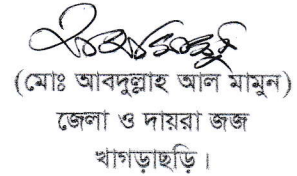 (মোঃ আবদুল্লাহ আল মামুন)
জেলা ও দায়রা জজ
খাগড়াছড়ি।